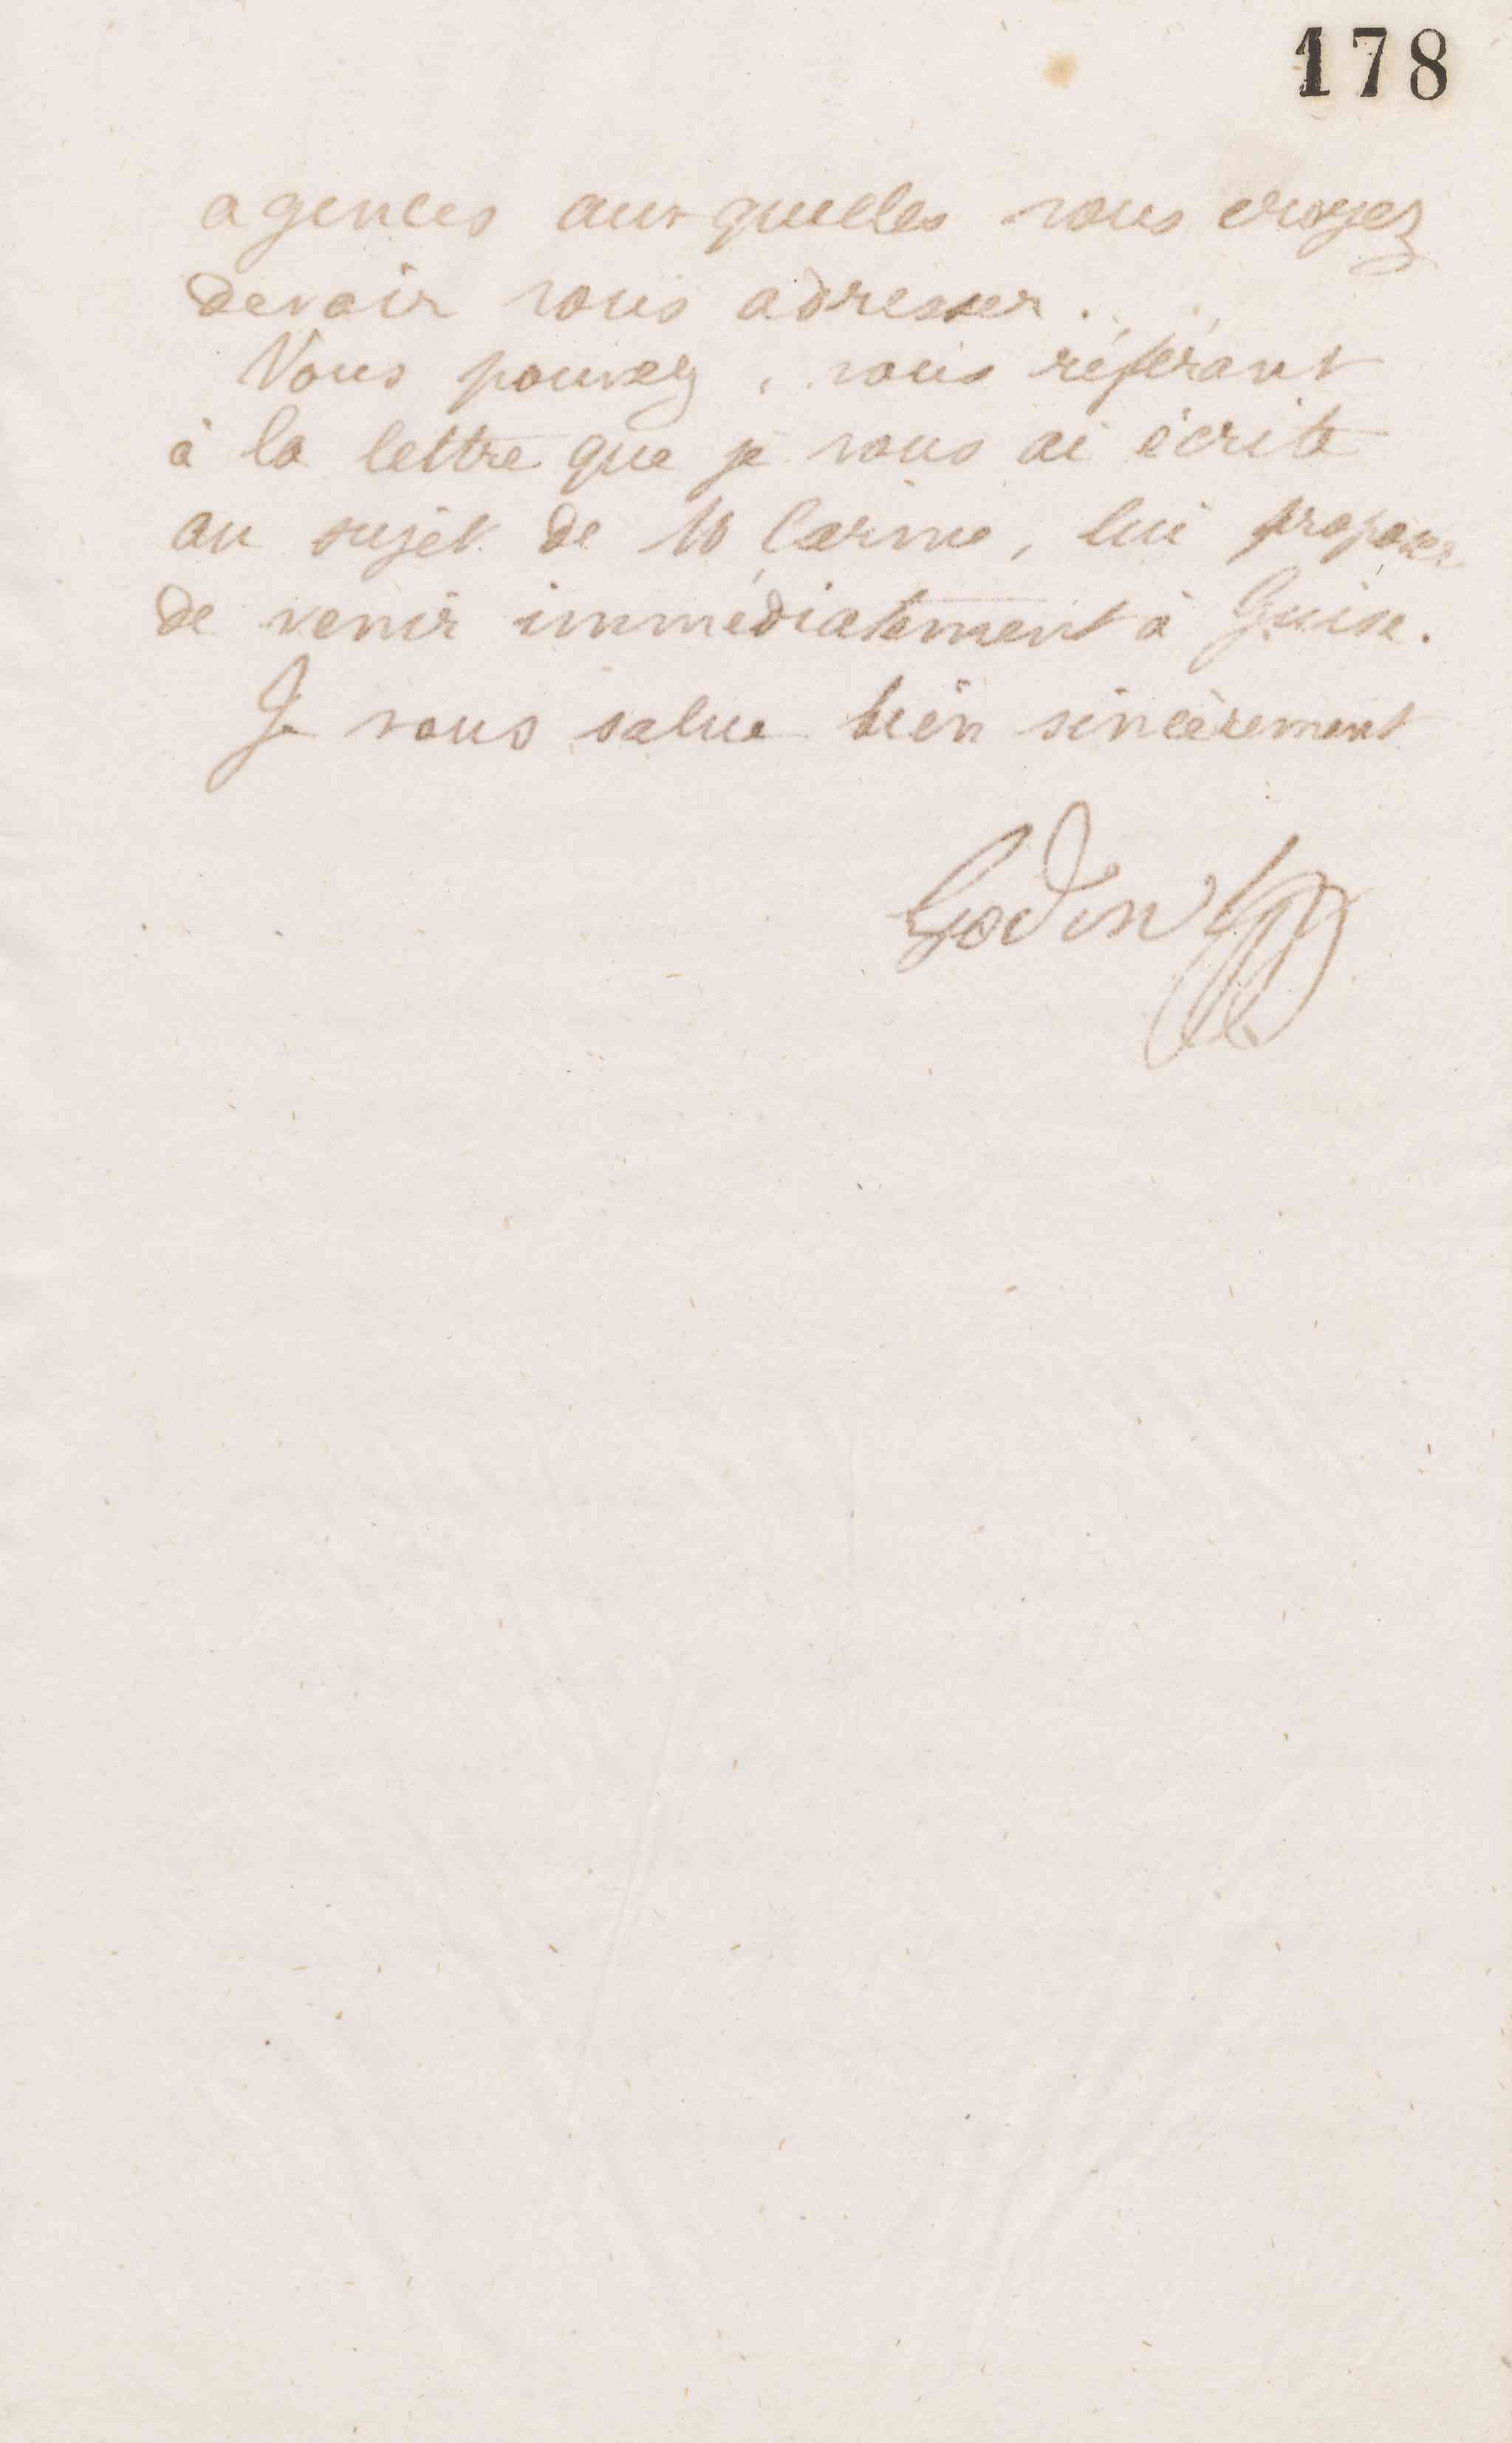 178
agences auxquelles vous croyez
devoir vous adresser.
Vous pouvez, vous référant
à la lettre que je vous ai écrite
au sujet de M Carine, lui proposer
de venir immédiatement à Guise.
Je vous salue bien sincèrement
Godin